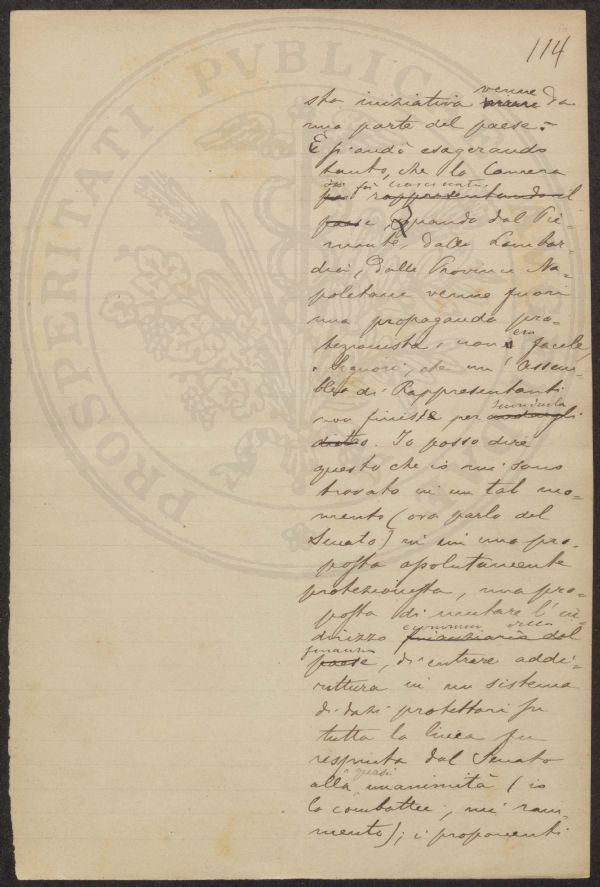 114
sta iniziativa venne da
una parte del paese.
E si andò esagerando
tanto, che la Camera
fu trascinata
rappresentando il
paese, quando dal Pie=
monte, dalla Lombar=
dia, dalle Provincie Na=
poletane venne fuori
una propaganda pro=
tezionista; non era facile,
Signori, che un'Assem=
blea di Rappresentanti
non finisse per
Io posso dire
questo che io mi sono
trovato in un tal mo=
mento (ora parlo del
Senato) in cui una pro=
posta assolutamente
protezionista, una pro=
posta di mutare l'in=
dirizzo finanziario del
paese, di entrare addi=
rittura in un sistema
di dazi protettori su
tutta la linea fu
respinta dal Senato
alla quasi unanimità (io
la combattei, mi ram=
mento); i proponenti
PROSPERITATI PVBLICAE